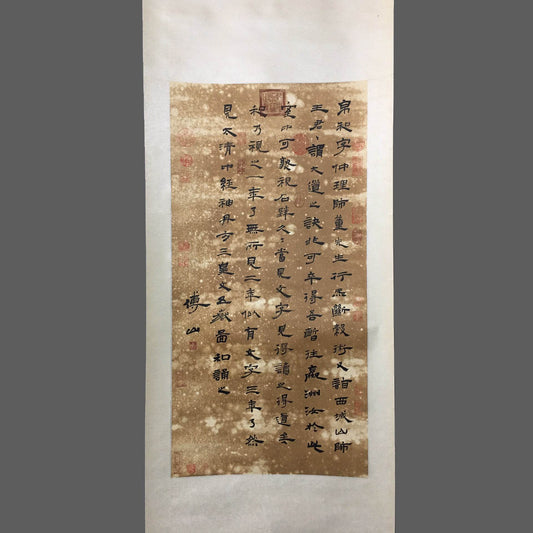 帛和字仲理師董先生行炁斷穀術又詣西城山師
王君君謂大道之訣非可卒得吾暫往瀛洲汝於此
室中可熟視石壁久久當見文字見得讀之得道矣
和乃視之一年了無所見二年似有文字三年了然
見太清中經神丹方三皇文五嶽圖和誦之
傅山